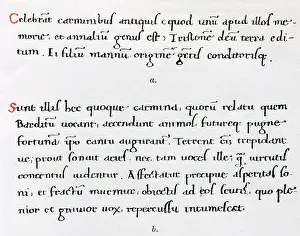 Celebrāt carminibus antiquis (quod unū apud illos me-
morię et annaliū genus est) Tristonē deū terra edi-
tum. Et filiū mannū originē gētis conditorisq̄.
a.
Sunt illis hęc quoque carmina, quorū relatu quem
Barditū vocant, accendunt animos futureq; pugnę
fortunā ipo cantu augurant. Terrent eīs trepidant
ve, prout sonuit acies, nec tam voces illę: q̄ virtutis
concentus videntur. Affectatur precipue asperitas so
ni, et fractū murmur, obiectis ad eos scutis, quo ple-
nior et gravior vox, repercussu intumescat.
b.